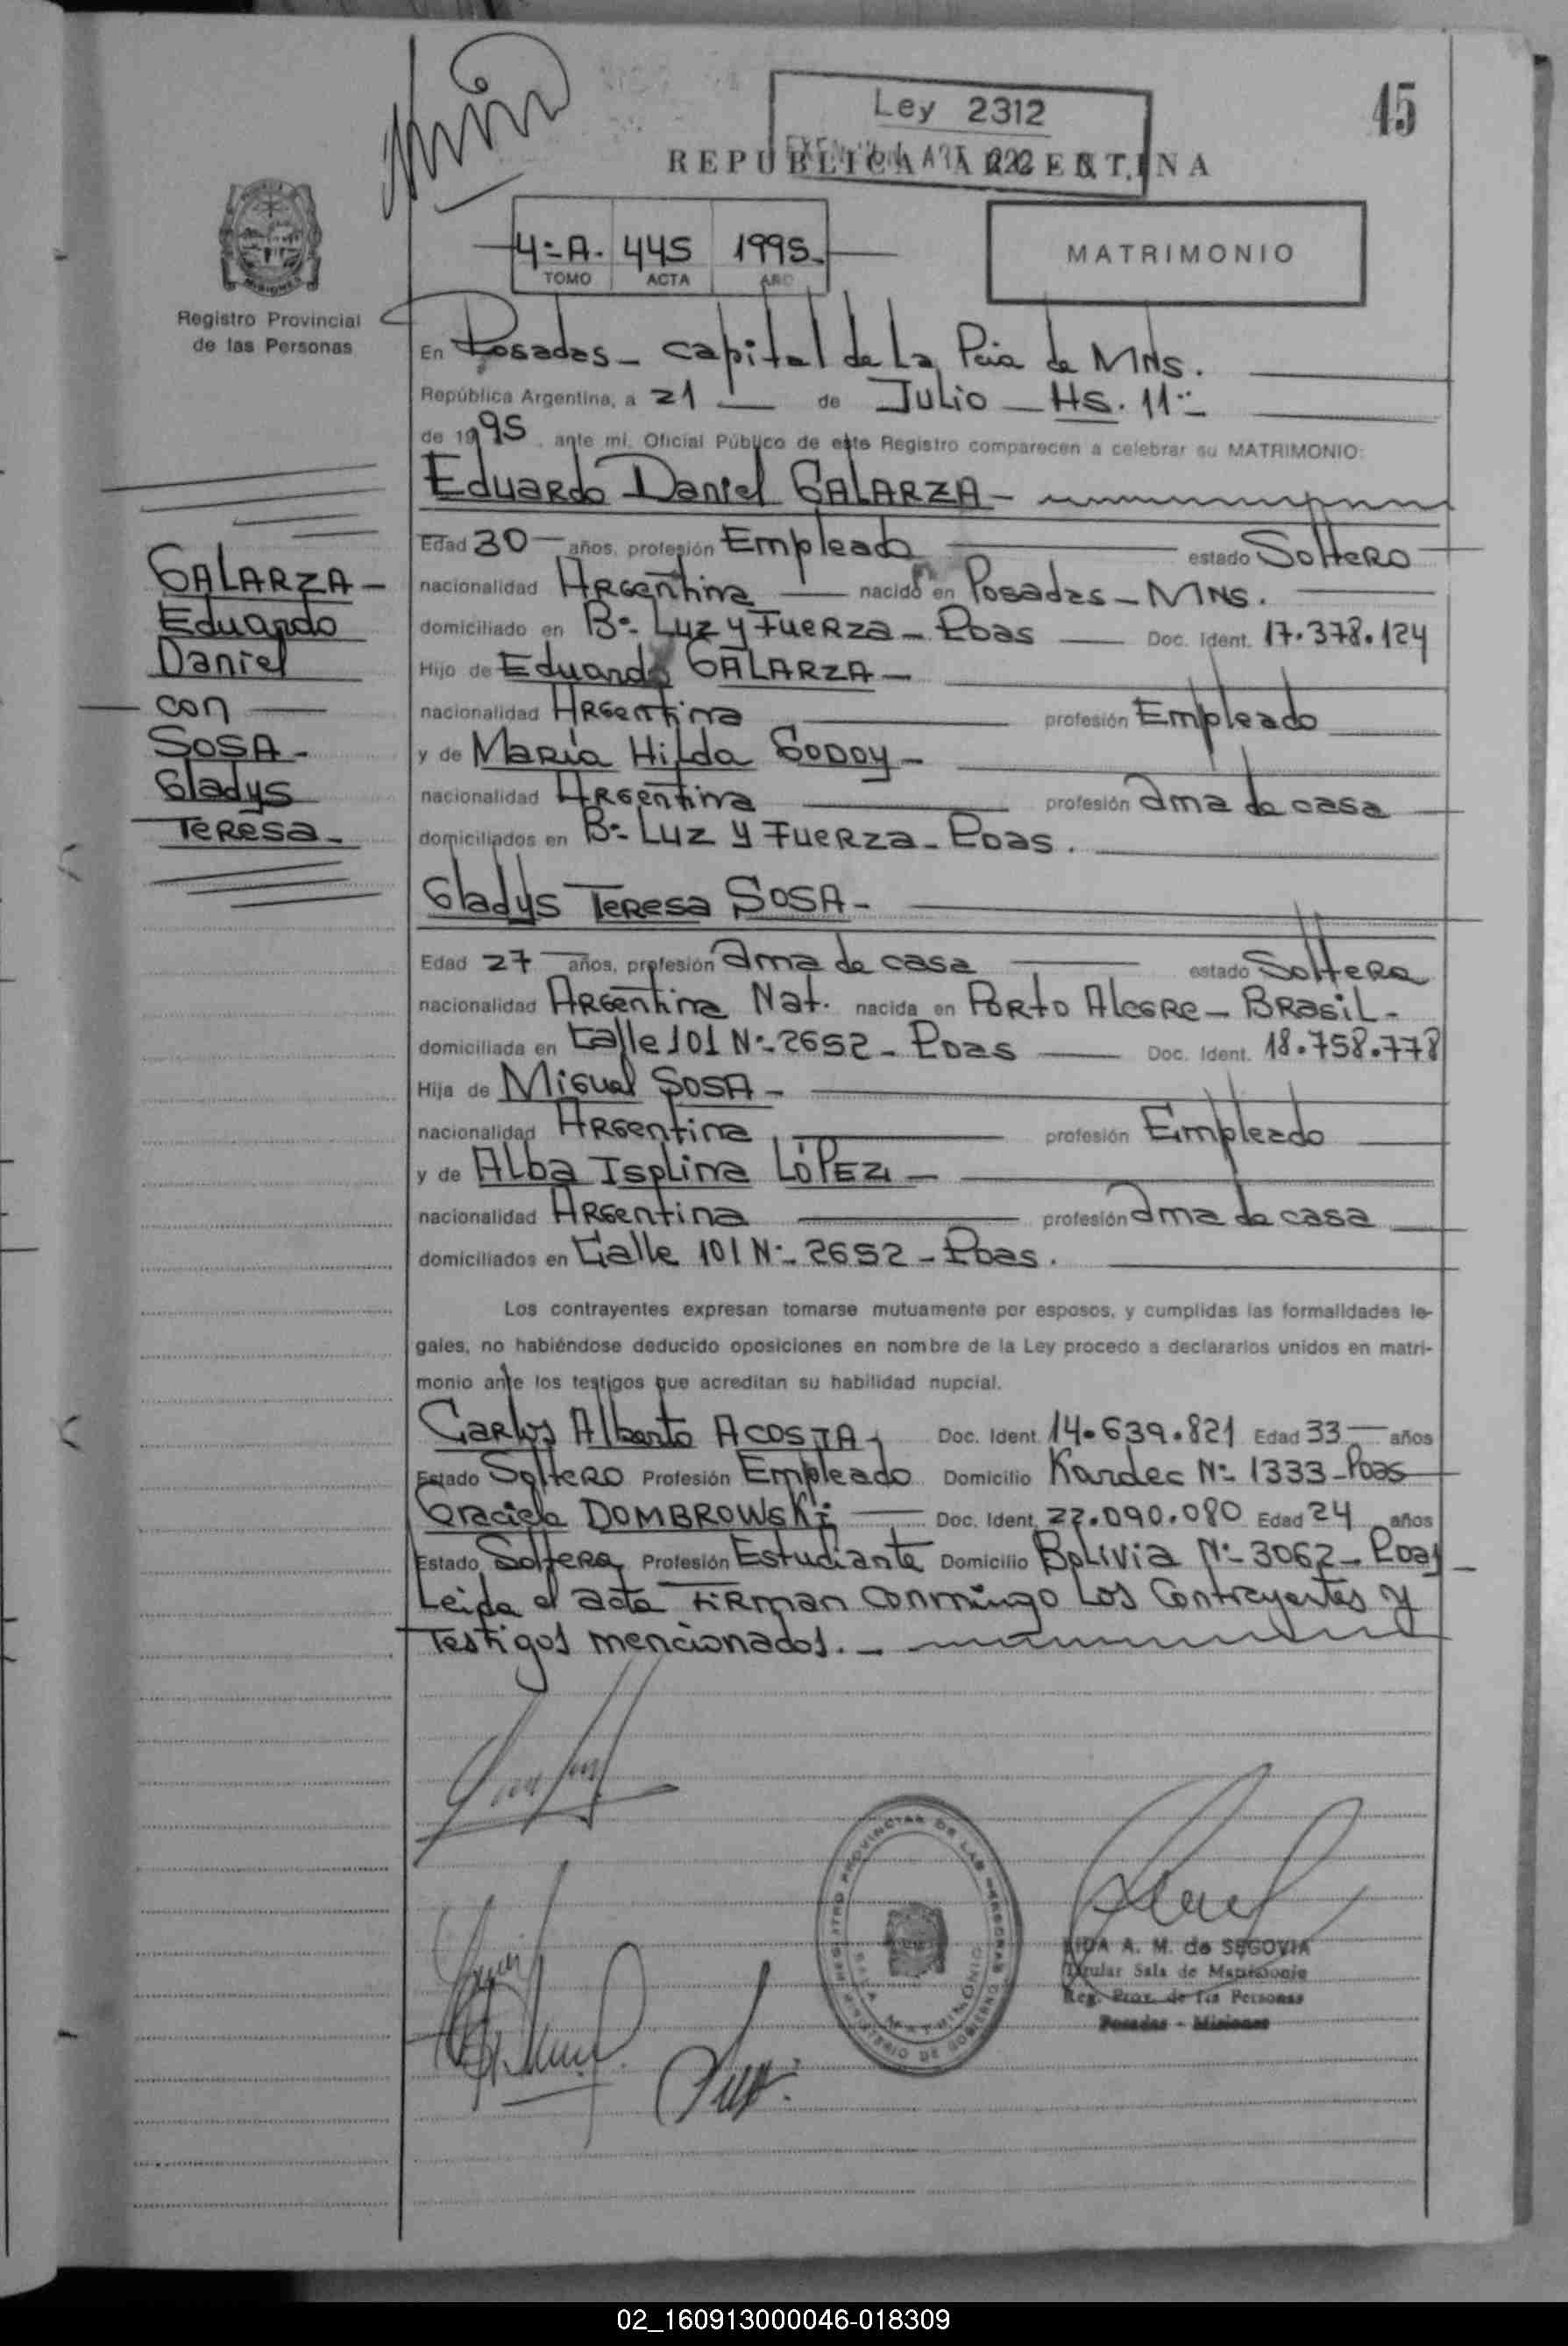 45
Ley 2312
REPUBLICA ARGENTINA
4º A. 445 1995
TOMO ACTA AÑO
MATRIMONIO
Registro Provincial
de las Personas
En Posadas - capital de La Pcia de MNS.
República Argentina, a 21 de Julio - HS. 11
de 1995, ante mi, Oficial Público de este Registro comparecen a celebrar su MATRIMONIO:
Eduardo Daniel GALARZA -
Edad 30 años, profesión Empleado estado Soltero
nacionalidad Argentina nacido en Posadas - MNS.
domiciliado en Bº Luz y Fuerza - Pdas Doc. Ident. 17.378.124
Hijo de Eduardo GALARZA -
nacionalidad Argentina profesión Empleado
y de María Hilda GODOY -
nacionalidad Argentina profesión ama de casa
domiciliados en Bº Luz y Fuerza - Pdas.
GALARZA -
Eduardo
Daniel
con
SOSA -
Gladys
Teresa -
Gladys Teresa SOSA -
Edad 27 años, profesión ama de casa estado Soltera
nacionalidad Argentina Nat. nacida en Porto Alegre - Brasil -
domiciliada en calle 101 Nº 2652 - Pdas Doc. Ident. 18.758.778
Hija de Miguel SOSA -
nacionalidad Argentina profesión Empleado
y de Alba Isplina LÓPEZ -
nacionalidad Argentina profesión ama de casa
domiciliados en Calle 101 Nº 2652 - Pdas.
Los contrayentes expresan tomarse mutuamente por esposos, y cumplidas las formalidades le-
gales, no habiéndose deducido oposiciones en nombre de la Ley procedo a declararlos unidos en matri-
monio ante los testigos que acreditan su habilidad nupcial.
Carlos Alberto ACOSTA - Doc. Ident. 14.639.821 Edad 33 años
Estado Soltero Profesión Empleado Domicilio Kardec Nº 1333 - Pdas
Graciela DOMBROWSKI Doc. Ident. 22.090.080 Edad 24 años
Estado Soltera Profesión Estudiante Domicilio Bolivia Nº 3062 - Pdas -
Leida el acta Firman conmingo Los Contrayentes y
Testigos mencionados. -
REGISTRO PROVINCIAL DE LAS PERSONAS
MINISTERIO DE GOBIERNO
SALA MATRIMONIO
A. M. de SEGOVIA
Titular Sala de Matrimonio
Reg. Prov. de las Personas
Posadas - Misiones
02_160913000046-018309